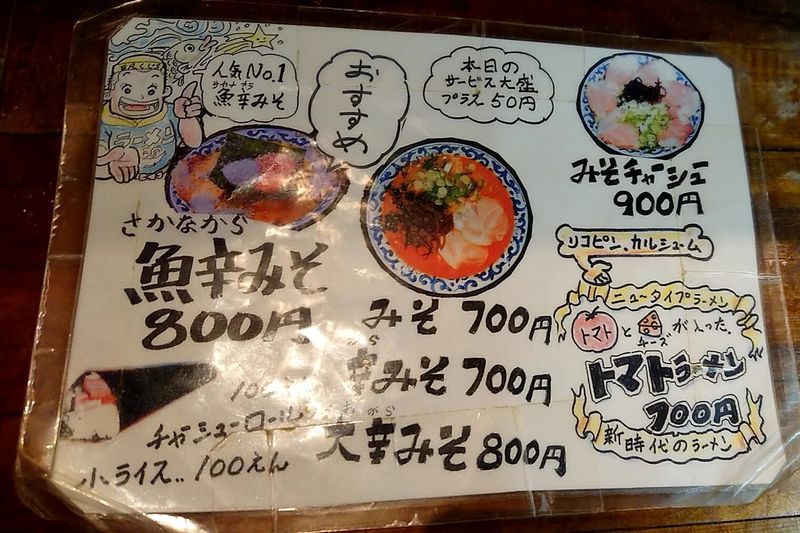 人気No.1
サカナ から
魚辛みそ
おすすめ
本日の
サービス大盛
プラス50円
みそチャーシュー
900円
さかなから
魚辛みそ
800円
みそ 700円
辛みそ 700円
おおから
大辛みそ 800円
チャーシューロール
小ライス.. 100えん
リコピン、カルシューム
ニュータイプラーメン
トマトと
チーズ
が入った
トマトラーメン
700円
新時代のラーメン